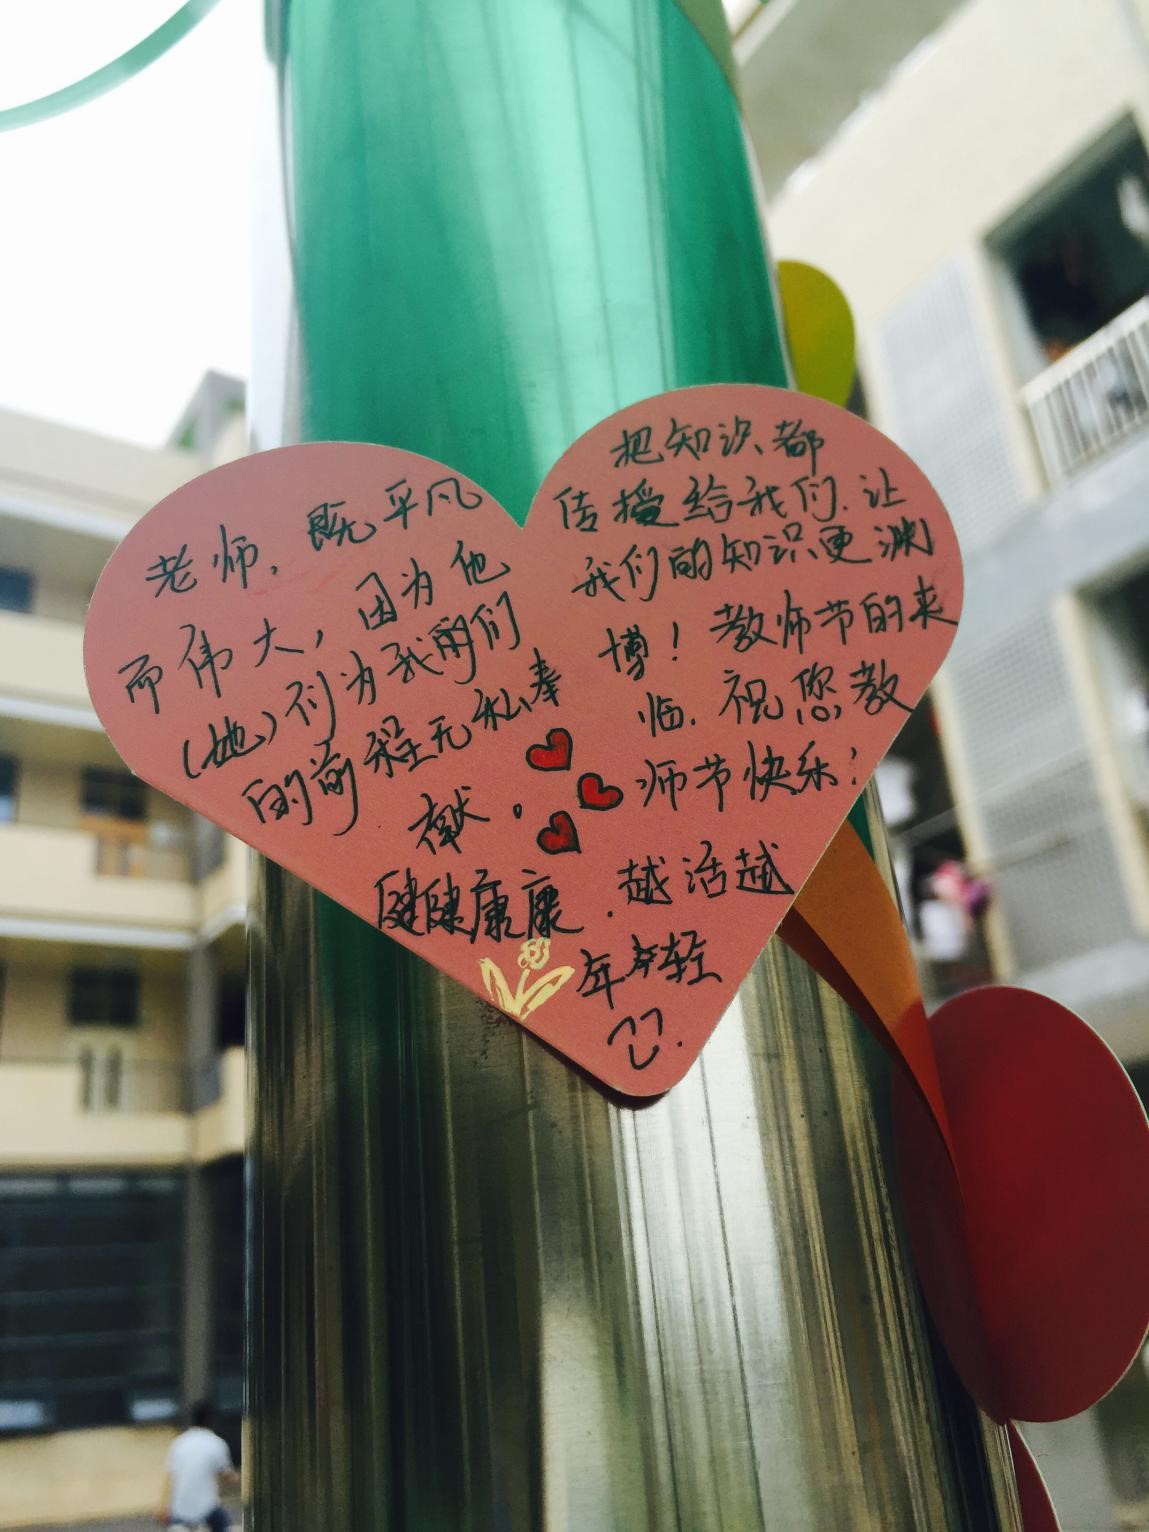 老师，既平凡
而伟大，因为他
（她）们为我们
的前程无私奉
献。
把知识都
传授给我们，让
我们的知识更渊
博！教师节的来
临，祝您教
师节快乐！
健健康康，越活越
年轻